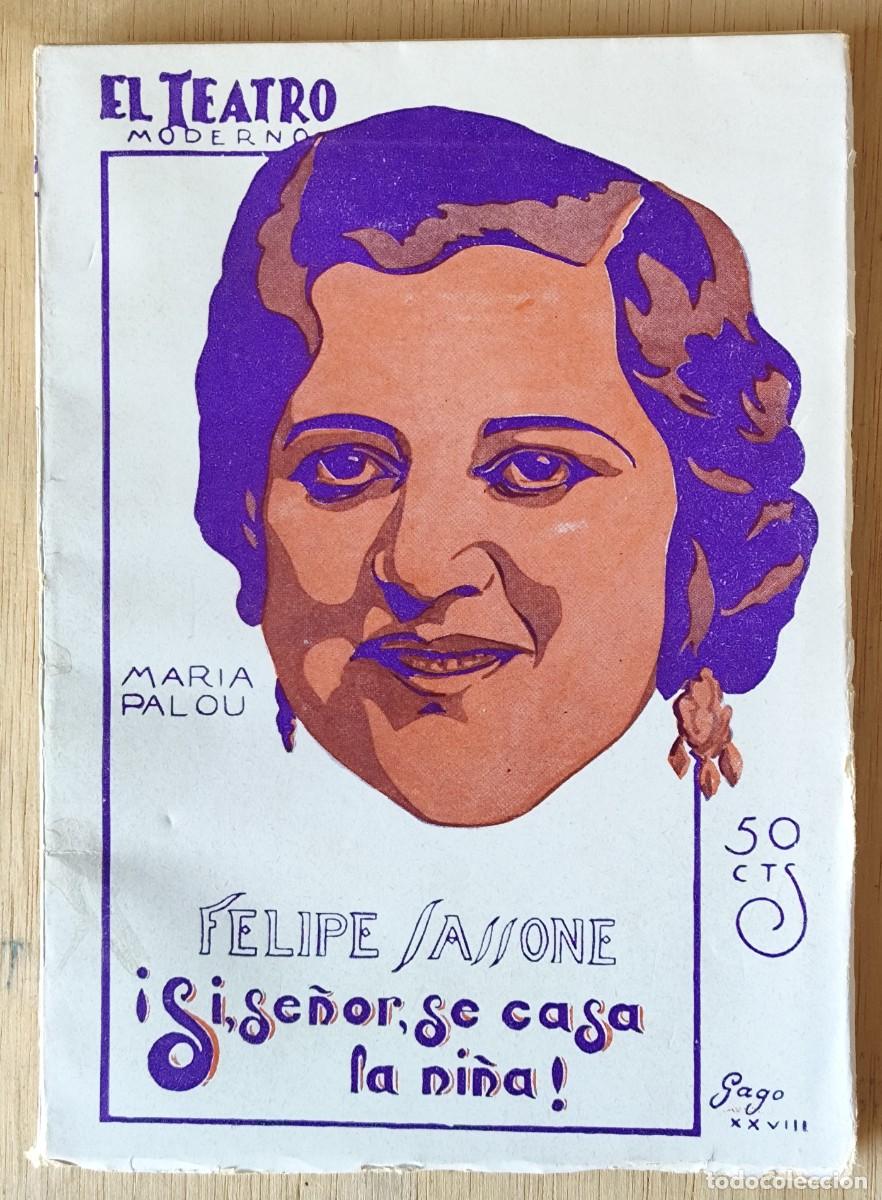 EL TEATRO
MODERNO
MARIA
PALOU
50
CTS
FELIPE SASSONE
¡Si, señor, se casa
la niña!
Gago
XXVIII
todocoleccion